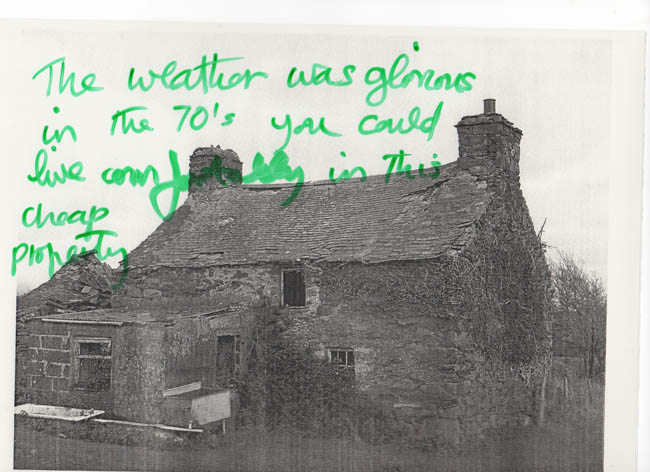 The weather was glorious
in the 70's you could
live comfortably in this
cheap
property